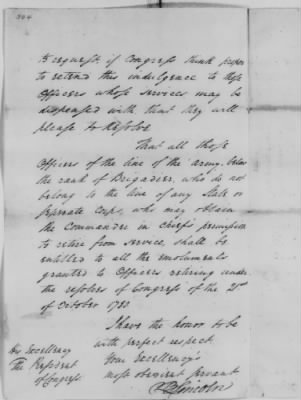 304
to request if Congress think proper
to extend this indulgence to those
Officers whose services may be
dispensed with that they will
please to Resolve
That all those
Officers of the line of the army, below
the rank of Brigadier, who do not
belong to the line of any State or
separate Corps, who may obtain
the Commander in chief's permission
to retire from service, shall be
entitled to all the emoluments
granted to Officers retiring under
the resolves of Congress of the 21st
of October 1780.
I have the honor to be
with perfect respect
Your Excellency's
most obedient servant
B Lincoln
His Excellency
The President
of Congress